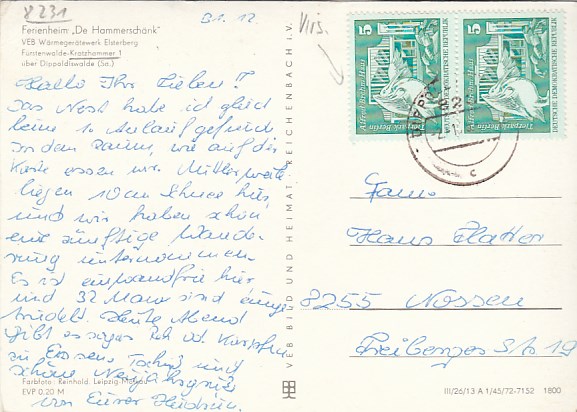 8231
Ferienheim „De Hammerschänk"
VEB Wärmegerätewerk Elsterberg
Fürstenwalde-Kratzhammer 1
über Dippoldiswalde (Sa.)
31. 12.
Hallo Ihr Lieben!
Das Nest habe ich gleich
beim 1. Anlauf gefunden.
In dem Raum, wie auf der
Karte essen wir. Mittlerweile
liegen 10 cm Schnee hier
und wir haben schon
eine zünftige Wande-
rung unternommen.
Es ist einwandfrei hier
und 32 Mann sind einge-
trudelt. Heute Abend
gibt es sogar Reh od.
zu Essen. Tschüß und
schöne Neujahrsgrüße
von Eurer
Farbfoto: Reinhold, Leipzig-Mölkau
EVP 0.20 M
VEB BILD UND HEIMAT REICHENBACH i. V.
5
Alfred-Brehm-Haus
Tierpark Berlin
DEUTSCHE DEMOKRATISCHE REPUBLIK
5
Alfred-Brehm-Haus
Tierpark Berlin
DEUTSCHE DEMOKRATISCHE REPUBLIK
c
Fam.
8255 Nossen
Freiberger Str. 19
III/26/13 A 1/45/72-7152 1800